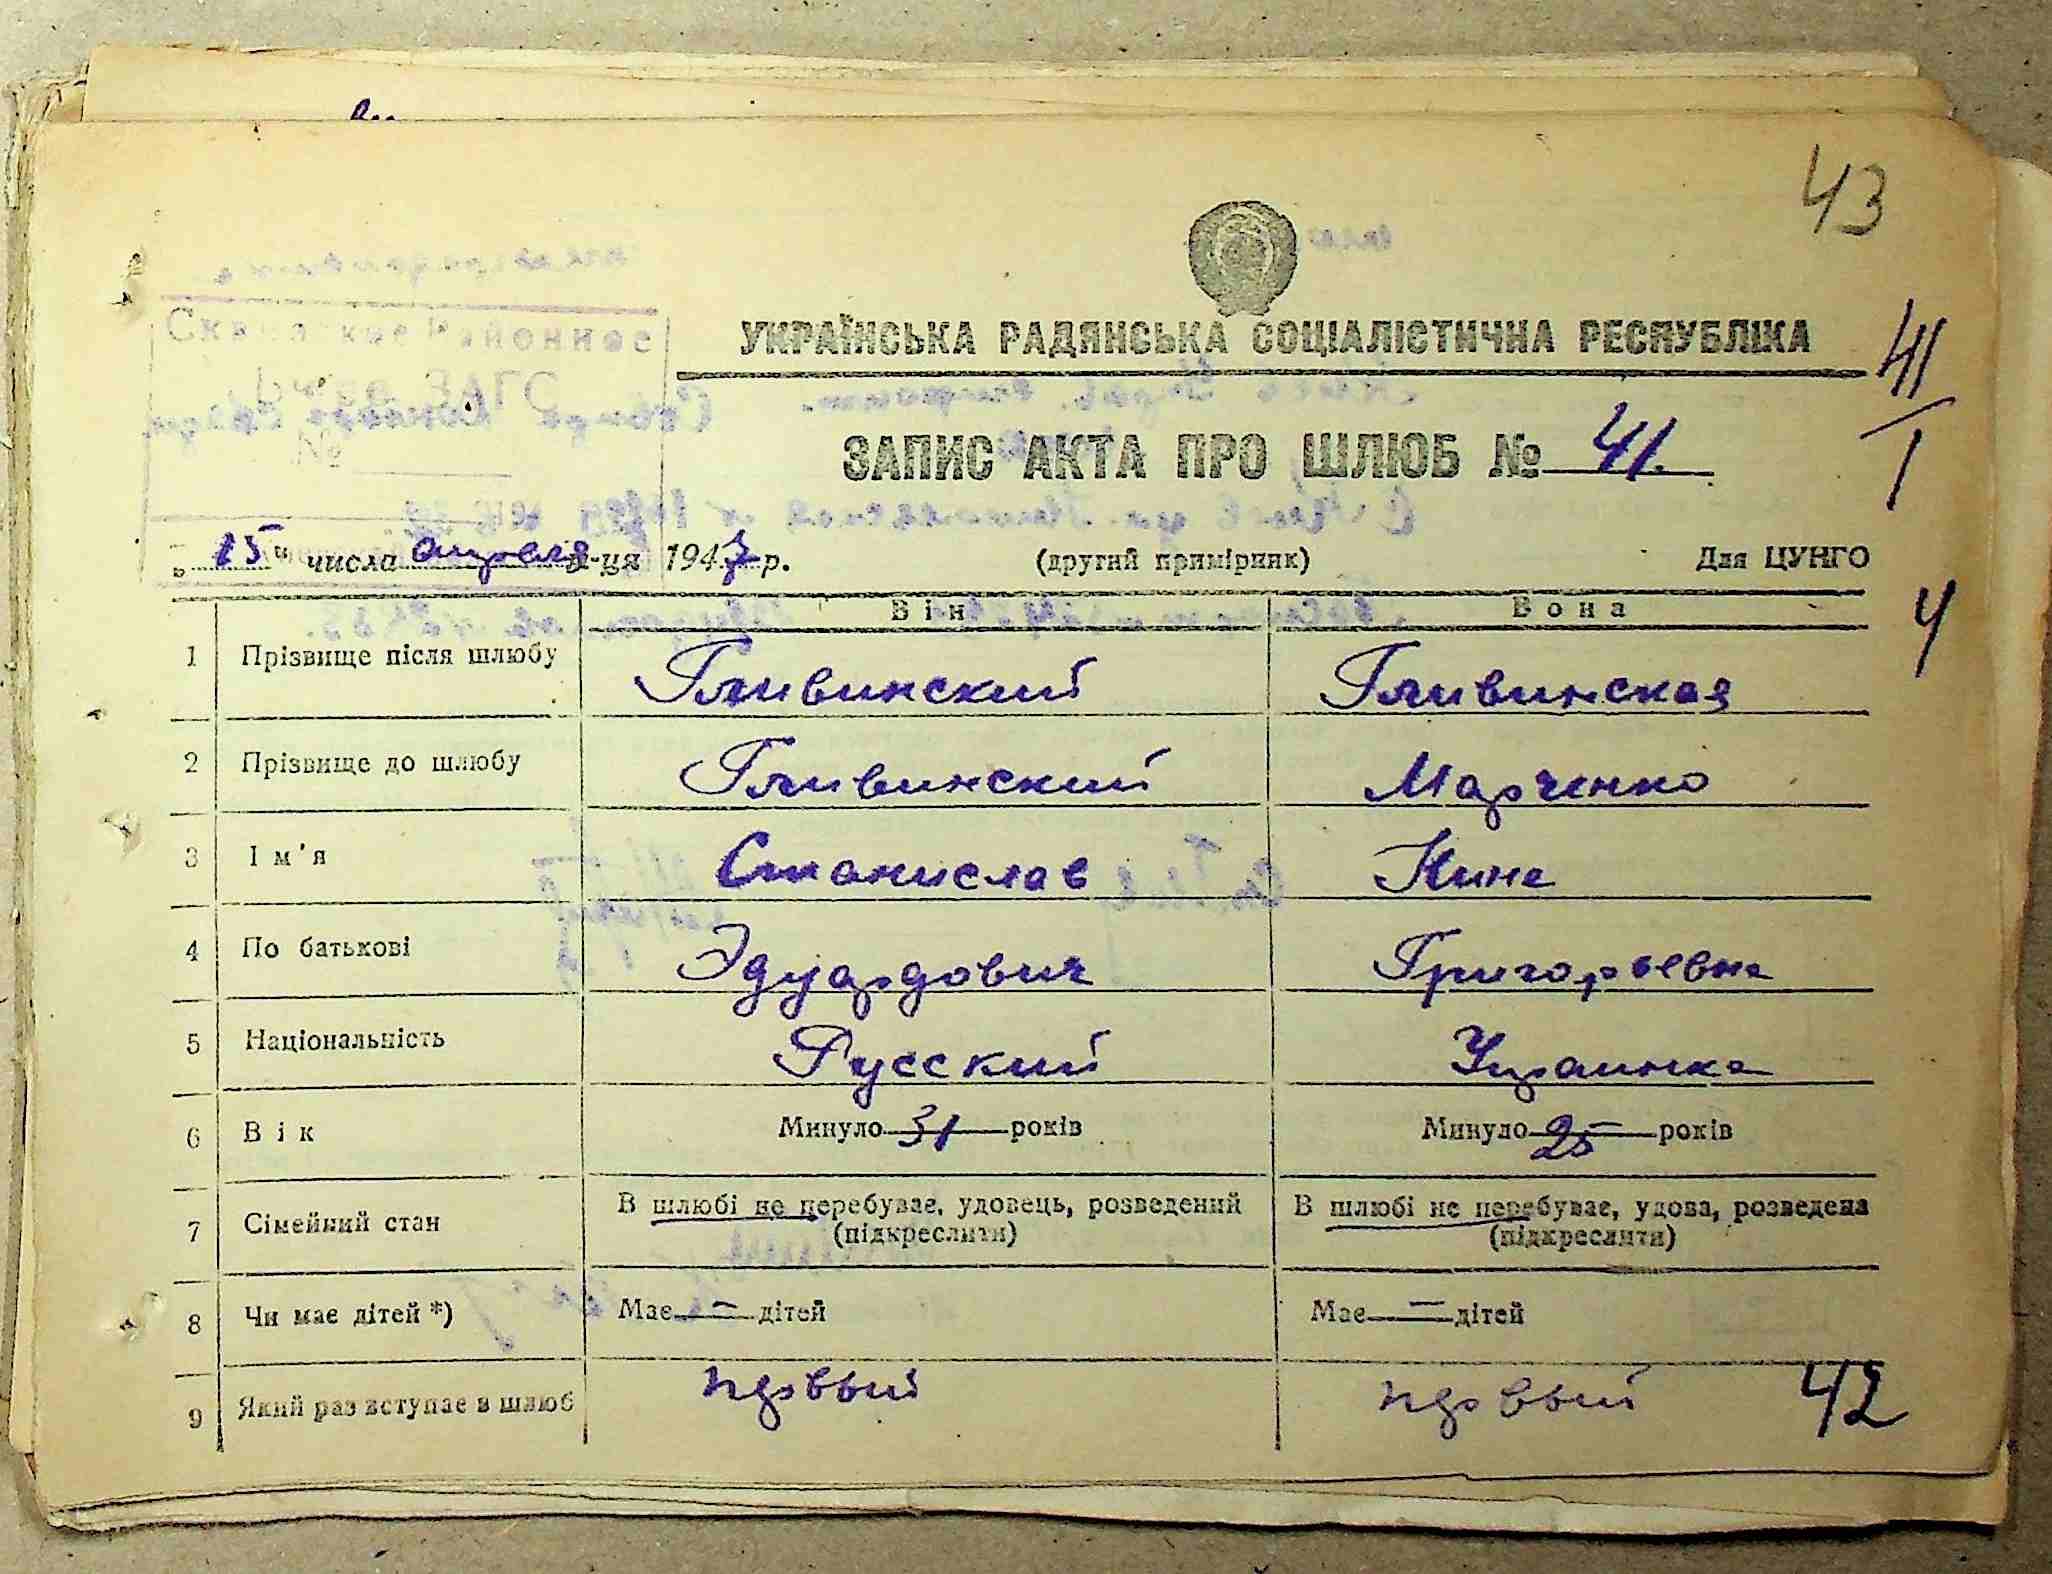 43
УКРАЇНСЬКА РАДЯНСЬКА СОЦІАЛІСТИЧНА РЕСПУБЛІКА
Районное
ЗАГС
№
41/1
ЗАПИС АКТА ПРО ШЛЮБ № 41.
„15" числа апреля м-ця 1947 р. (другий примірник) Для ЦУНГО
Він Вона
Ч
1 Прізвище після шлюбу Гливинский Гливинская
2 Прізвище до шлюбу Гливинский Марченко
3 Ім'я Станислав Нина
4 По батькові Эдуардович Григорьевна
5 Національність Русский Украинка
6 Вік Минуло 31 років Минуло 25 років
7 Сімейний стан В шлюбі не перебуває, удовець, розведений В шлюбі не перебуває, удова, розведена
(підкреслити) (підкреслити)
8 Чи має дітей *) Має — дітей Має — дітей
9 Який раз вступає в шлюб первый первый
42